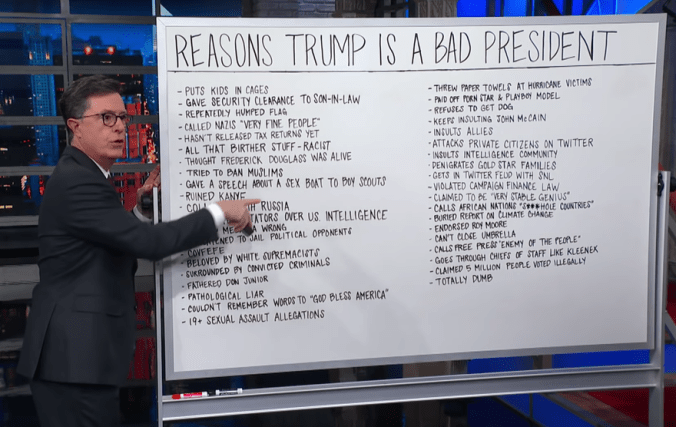 REASONS TRUMP IS A BAD PRESIDENT
- PUTS KIDS IN CAGES
- GAVE SECURITY CLEARANCE TO SON-IN-LAW
- REPEATEDLY HUMPED FLAG
- CALLED NAZIS "VERY FINE PEOPLE"
- HASN'T RELEASED TAX RETURNS YET
- ALL THAT BIRTHER STUFF - RACIST
- THOUGHT FREDERICK DOUGLASS WAS ALIVE
- TRIED TO BAN MUSLIMS
- GAVE A SPEECH ABOUT A SEX BOAT TO BOY SCOUTS
- RUINED KANYE
RUSSIA
OVER U.S. INTELLIGENCE
WRONG
TO JAIL POLITICAL OPPONENTS
- COVFEFE
- BELOVED BY WHITE SUPREMACISTS
- SURROUNDED BY CONVICTED CRIMINALS
- FATHERED DON JUNIOR
- PATHOLOGICAL LIAR
- COULDN'T REMEMBER WORDS TO "GOD BLESS AMERICA"
- 19+ SEXUAL ASSAULT ALLEGATIONS
- THREW PAPER TOWELS AT HURRICANE VICTIMS
- PAID OFF PORN STAR & PLAYBOY MODEL
- REFUSES TO GET DOG
- KEEPS INSULTING JOHN McCAIN
- INSULTS ALLIES
- ATTACKS PRIVATE CITIZENS ON TWITTER
- INSULTS INTELLIGENCE COMMUNITY
- DENIGRATES GOLD STAR FAMILIES
- GETS IN TWITTER FEUD WITH SNL
- VIOLATED CAMPAIGN FINANCE LAW
- CLAIMED TO BE "VERY STABLE GENIUS"
- CALLS AFRICAN NATIONS "S***HOLE COUNTRIES"
- BURIED REPORT ON CLIMATE CHANGE
- ENDORSED ROY MOORE
- CAN'T CLOSE UMBRELLA
- CALLS FREE PRESS "ENEMY OF THE PEOPLE"
- GOES THROUGH CHIEFS OF STAFF LIKE KLEENEX
- CLAIMED 5 MILLION PEOPLE VOTED ILLEGALLY
- TOTALLY DUMB